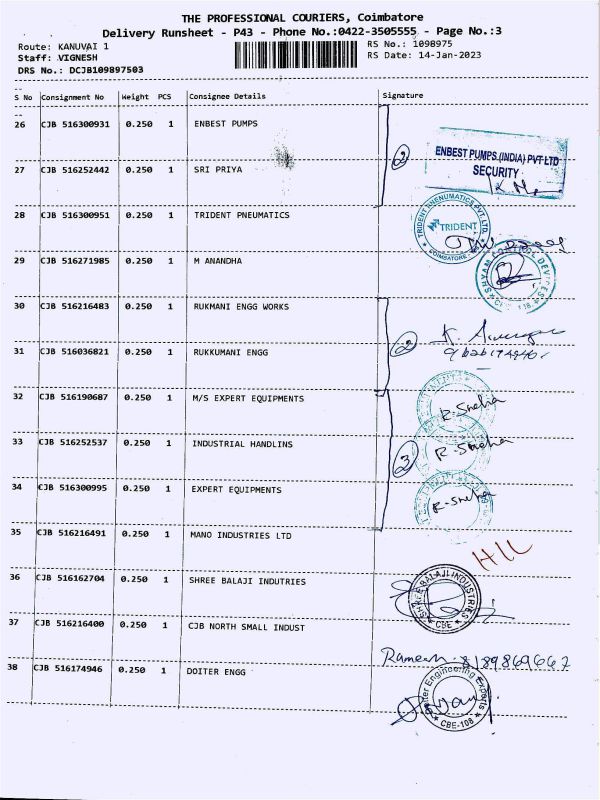 THE PROFESSIONAL COURIERS, Coimbatore
Delivery Runsheet - P43 - Phone No.:0422-3505555 - Page No.:3
Route: KANUVAI 1
RS No.: 1098975
Staff: VIGNESH
RS Date: 14-Jan-2023
DRS No.: DCJB109897503
S No Consignment No Weight PCS Consignee Details Signature
26 CJB 516300931 0.250 1 ENBEST PUMPS
2
ENBEST PUMPS (INDIA) PVT LTD
SECURITY
27 CJB 516252442 0.250 1 SRI PRIYA
28 CJB 516300951 0.250 1 TRIDENT PNEUMATICS
TRIDENT PNENUMATICS PVT. LTD.
TRIDENT
COIMBATORE
29 CJB 516271985 0.250 1 M ANANDHA
SHYAM CONTROL DEVICES
30 CJB 516216483 0.250 1 RUKMANI ENGG WORKS
2
31 CJB 516036821 0.250 1 RUKKUMANI ENGG
32 CJB 516190687 0.250 1 M/S EXPERT EQUIPMENTS
R-Sneha
33 CJB 516252537 0.250 1 INDUSTRIAL HANDLINS
3
R-Sneha
34 CJB 516300995 0.250 1 EXPERT EQUIPMENTS
R-Sneha
35 CJB 516216491 0.250 1 MANO INDUSTRIES LTD
36 CJB 516162704 0.250 1 SHREE BALAJI INDUTRIES
SHREE BALAJI INDUSTRIES
CBE
37 CJB 516216400 0.250 1 CJB NORTH SMALL INDUST
Ramesh 8189869667
38 CJB 516174946 0.250 1 DOITER ENGG
Doiter Engineering Exports
CBE-108